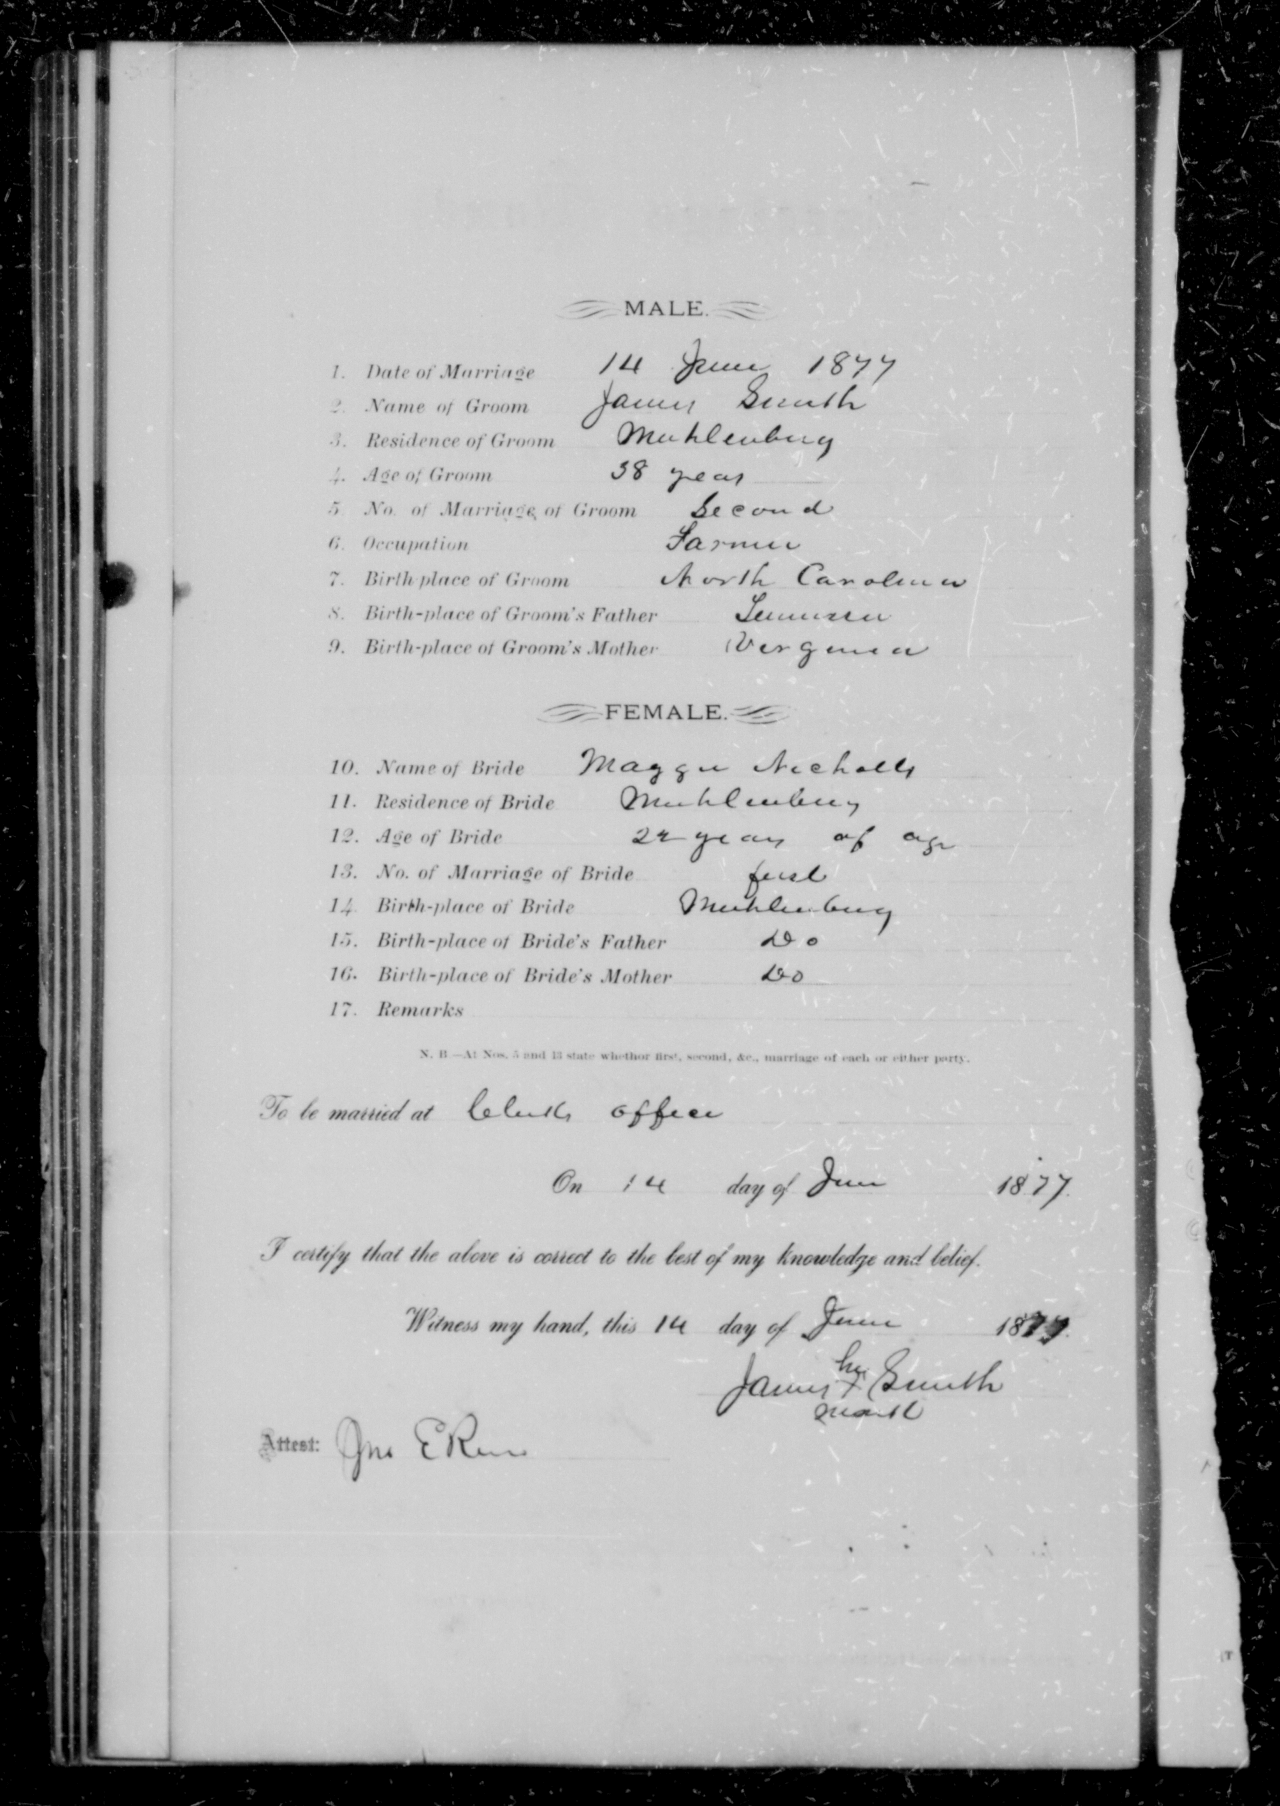 MALE.
1. Date of Marriage 14 June 1877
2. Name of Groom James Smith
3. Residence of Groom Muhlenburg
4. Age of Groom 38 years
5. No. of Marriage of Groom Second
6. Occupation Farmer
7. Birth-place of Groom North Carolina
8. Birth-place of Groom's Father Tennessee
9. Birth-place of Groom's Mother Virginia
FEMALE.
10. Name of Bride Maggie Nicholls
11. Residence of Bride Muhlenburg
12. Age of Bride 22 years of age
13. No. of Marriage of Bride first
14. Birth-place of Bride Muhlenburg
15. Birth-place of Bride's Father Do
16. Birth-place of Bride's Mother Do
17. Remarks
N. B.—At Nos. 5 and 13 state whethor first, second, &c., marriage of each or either party.
To be married at Clerks office
On 14 day of June 1877.
I certify that the above is correct to the best of my knowledge and belief.
Witness my hand, this 14 day of June 1877.
his
James X Smith
mark
Attest: Jno E